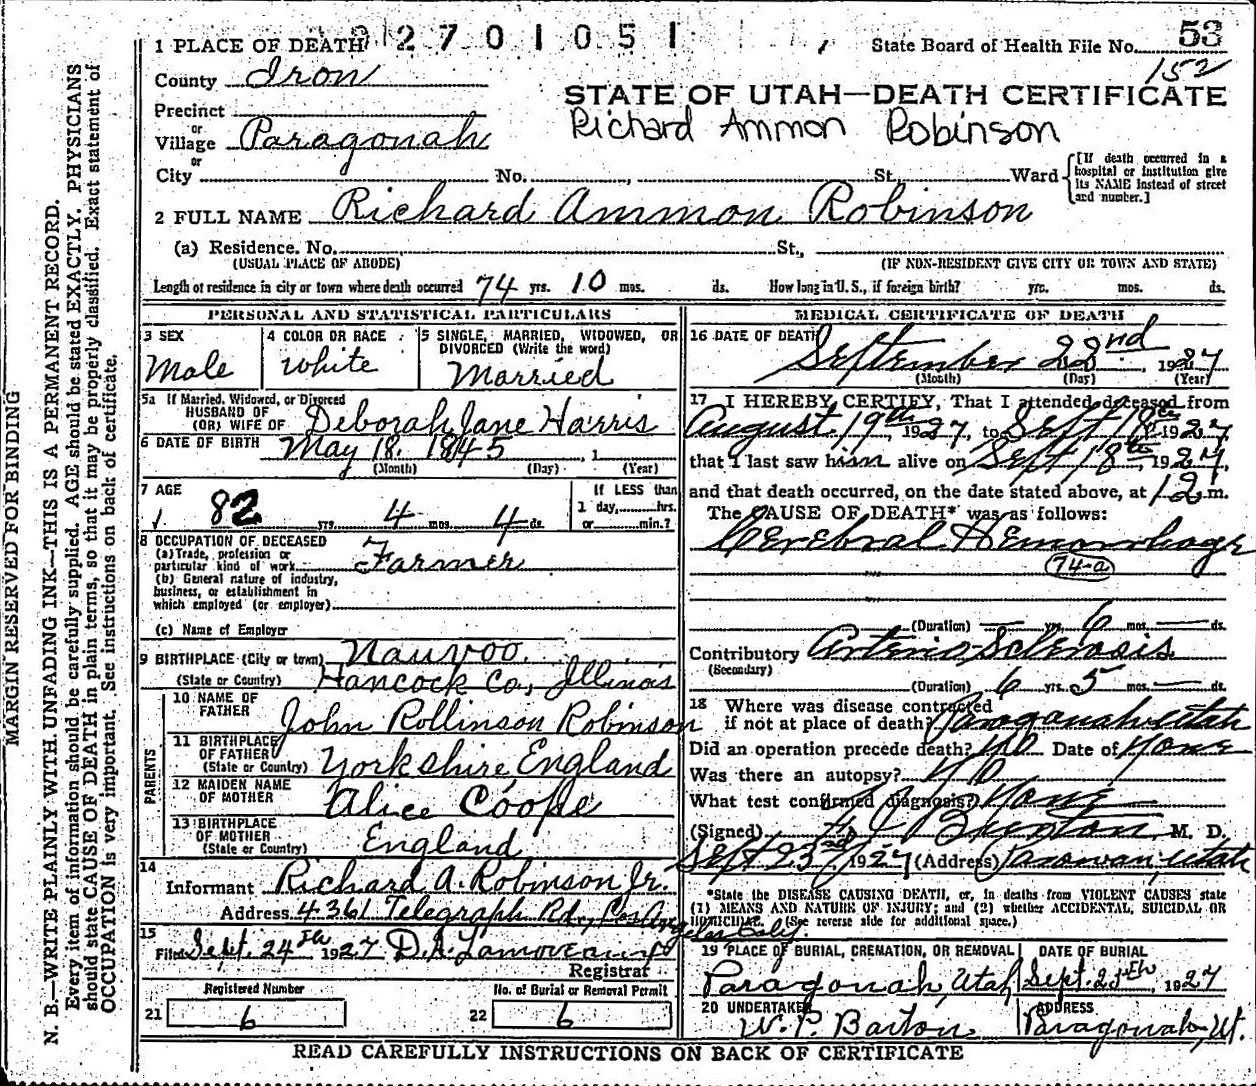 MARGIN RESERVED FOR BINDING
N. B.—WRITE PLAINLY WITH UNFADING INK—THIS IS A PERMANENT RECORD.
Every item of information should be carefully supplied. AGE should be stated EXACTLY. PHYSICIANS
should state CAUSE OF DEATH in plain terms, so that it may be properly classified. Exact statement of
OCCUPATION is very important. See instructions on back of certificate.
1 PLACE OF DEATH 2 7 0 1 0 5 1
State Board of Health File No. 53
152
County Iron
STATE OF UTAH—DEATH CERTIFICATE
Richard Ammon Robinson
Precinct
or
Village Paragonah
or
City No. St. Ward
[If death occurred in a
hospital or institution give
its NAME instead of street
and number.]
2 FULL NAME Richard Ammon Robinson
(a) Residence. No. St.,
(USUAL PLACE OF ABODE) (IF NON-RESIDENT GIVE CITY OR TOWN AND STATE)
Length of residence in city or town where death occurred 74 yrs. 10 mos. ds. How long in U. S., if foreign birth? yrs. mos. ds.
PERSONAL AND STATISTICAL PARTICULARS
3 SEX
Male
4 COLOR OR RACE
White
5 SINGLE, MARRIED, WIDOWED, OR
DIVORCED (Write the word)
Married
5a If Married, Widowed, or Divorced
HUSBAND OF
(OR) WIFE OF Deborah Jane Harris
6 DATE OF BIRTH May 18. 1845
(Month) (Day) (Year)
7 AGE
82 yrs. 4 mos. 4 ds.
If LESS than
1 day, hrs.
or min.?
8 OCCUPATION OF DECEASED
(a) Trade, profession or
particular kind of work Farmer
(b) General nature of industry,
business, or establishment in
which employed (or employer)
(c) Name of Employer
9 BIRTHPLACE (City or town) Nauvoo.
(State or Country) Hancock Co., Illinois
PARENTS
10 NAME OF
FATHER John Rollinson Robinson
11 BIRTHPLACE
OF FATHER
(State or Country) Yorkshire England
12 MAIDEN NAME
OF MOTHER Alice Coope
13 BIRTHPLACE
OF MOTHER
(State or Country) England
14
Informant Richard A. Robinson Jr.
Address 4361 Telegraph Rd., Los Angeles Calif.
15
Filed Sept. 24th 1927 D.A. Lamoreaux
Registrar
Registered Number
21 6
No. of Burial or Removal Permit
22 6
MEDICAL CERTIFICATE OF DEATH
16 DATE OF DEATH
September 22nd, 1927
(Month) (Day) (Year)
17 I HEREBY CERTIFY, That I attended deceased from
August 19th, 1927, to Sept 18th 1927,
that I last saw him alive on Sept 18th, 1927,
and that death occurred, on the date stated above, at 12 m.
The CAUSE OF DEATH* was as follows:
Cerebral Hemorrhage
74-a
(Duration) yrs. 6 mos. ds.
Contributory Arterio Sclerosis
(Secondary)
(Duration) 6 yrs. 5 mos. ds.
18 Where was disease contracted
if not at place of death? Paragonah, Utah
Did an operation precede death? No Date of None
Was there an autopsy? No
What test confirmed diagnosis? None
(Signed) Burton M. D.
Sept 23rd, 1927 (Address) Parowan, Utah
*State the DISEASE CAUSING DEATH, or, in deaths from VIOLENT CAUSES state
(1) MEANS AND NATURE OF INJURY; and (2) whether ACCIDENTAL, SUICIDAL OR
HOMICIDAL. (See reverse side for additional space.)
19 PLACE OF BURIAL, CREMATION, OR REMOVAL
Paragonah, Utah
DATE OF BURIAL
Sept. 25th, 1927
20 UNDERTAKER
W. P. Barton
ADDRESS
Paragonah, Ut.
READ CAREFULLY INSTRUCTIONS ON BACK OF CERTIFICATE